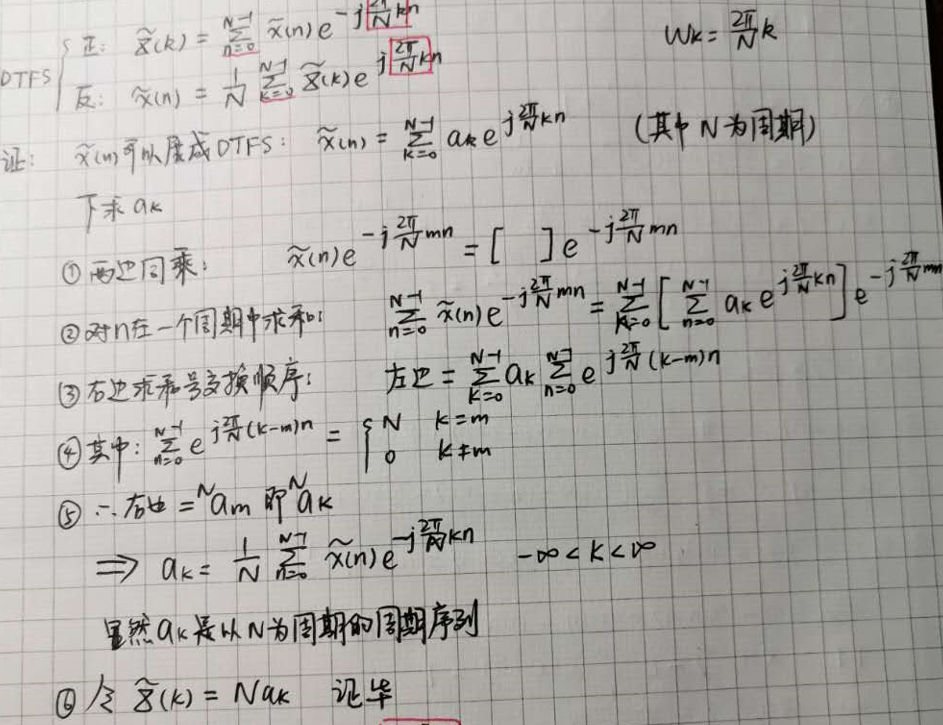 DTFS { 正: x̃(k) = ∑_{n=0}^{N-1} x̃(n) e^{-j\frac{2π}{N}kn}    W_k = \frac{2π}{N}k
反: x̃(n) = \frac{1}{N} ∑_{k=0}^{N-1} x̃(k) e^{j\frac{2π}{N}kn}
证: x̃(n)可以展成DTFS: x̃(n) = ∑_{k=0}^{N-1} a_k e^{j\frac{2π}{N}kn} (其中N为周期)
下求 a_k
①两边同乘: x̃(n) e^{-j\frac{2π}{N}mn} = [ ] e^{-j\frac{2π}{N}mn}
②对n在一个周期中求和: ∑_{n=0}^{N-1} x̃(n) e^{-j\frac{2π}{N}mn} = ∑_{k=0}^{N-1} [ ∑_{n=0}^{N-1} a_k e^{j\frac{2π}{N}kn} ] e^{-j\frac{2π}{N}mn}
③右边求和号交换顺序: 右边 = ∑_{k=0}^{N-1} a_k ∑_{n=0}^{N-1} e^{j\frac{2π}{N}(k-m)n}
④其中: ∑_{n=0}^{N-1} e^{j\frac{2π}{N}(k-m)n} = { N k=m
0 k≠m
⑤ ∴右边 = N a_m 即 N a_k
⇒ a_k = \frac{1}{N} ∑_{n=0}^{N-1} x̃(n) e^{-j\frac{2π}{N}kn}    -∞<k<∞
显然a_k是以N为周期的周期序列
⑥ 令 x̃(k) = N a_k 证毕